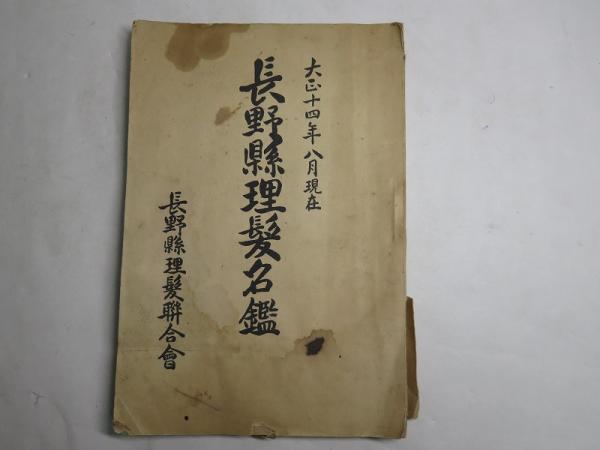 大正十四年八月現在
長野縣理髮名鑑
長野縣理髮聯合會